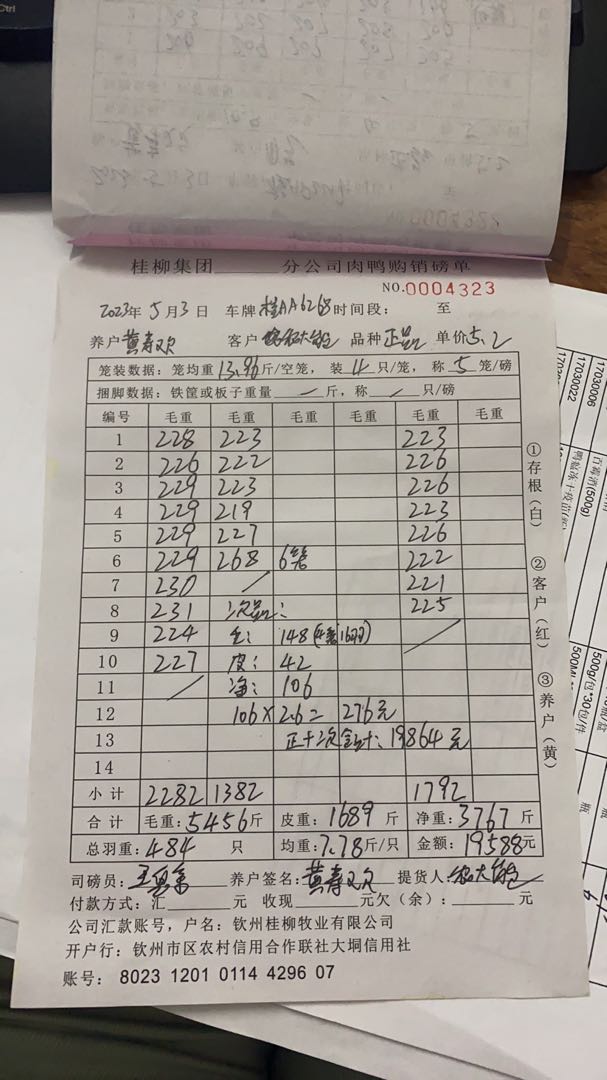 Ctrl
0004322
桂柳集团______分公司肉鸭购销磅单
NO.0004323
2023年5月3日 车牌桂AA6268时间段: 至
养户黄寿欢 客户 品种正品 单价5.2
笼装数据: 笼均重13.96斤/空笼, 装4只/笼, 称5笼/磅
捆脚数据: 铁筐或板子重量 — 斤, 称 — 只/磅
编号 毛重 毛重 毛重 毛重 毛重 毛重
1 228 223 223
2 226 222 226
3 229 223 226
4 229 219 223
5 229 227 226
6 229 268 6笼 222
7 230 / 221
8 231 次品: 225
9 224 毛: 148 /
10 227 皮: 42
11 / 净: 106
12 106×2.6= 276元
13 正+次合计: 19864元
14
小计 2282 1382 1792
合计 毛重:5456斤 皮重:1689斤 净重:3767斤
总羽重:484 只 均重:7.78斤/只 金额:19588元
司磅员: 养户签名:黄寿欢 提货人:
付款方式:汇______元 收现______元欠(余):______元
公司汇款账号,户名:钦州桂柳牧业有限公司
开户行:钦州市区农村信用合作联社大垌信用社
账号: 8023 1201 0114 4296 07
①存根(白) ②客户(红) ③养户(黄)
17030006
17030022
(500g)
500g/包*30包/件
500ML
瓶